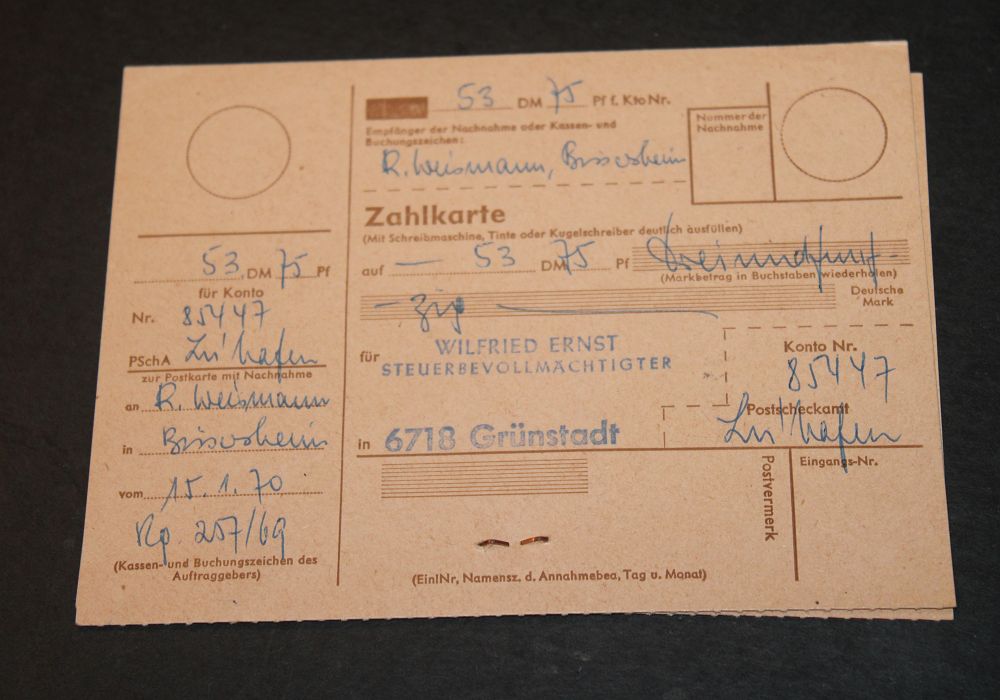 53 DM 75 Pf
für Konto
Nr. 85447
PSchA Lu'hafen
zur Postkarte mit Nachnahme
an R. Weismann
in Bissersheim
vom 15.1.70
Rp. 257/69
(Kassen- und Buchungszeichen des
Auftraggebers)
53 DM 75 Pf f. Kto Nr.
Empfänger der Nachnahme oder Kassen- und
Buchungszeichen:
R. Weismann, Bissersheim
Nummer der
Nachnahme
Zahlkarte
(Mit Schreibmaschine, Tinte oder Kugelschreiber deutlich ausfüllen)
auf — 53 DM 75 Pf Dreiundfünf-
(Markbetrag in Buchstaben wiederholen)
-zig —
Deutsche
Mark
für WILFRIED ERNST
STEUERBEVOLLMÄCHTIGTER
in 6718 Grünstadt
Konto Nr.
85447
Postscheckamt
Lu'hafen
Postvermerk
Eingangs-Nr.
(EinlNr, Namensz. d. Annahmebea, Tag u. Monat)